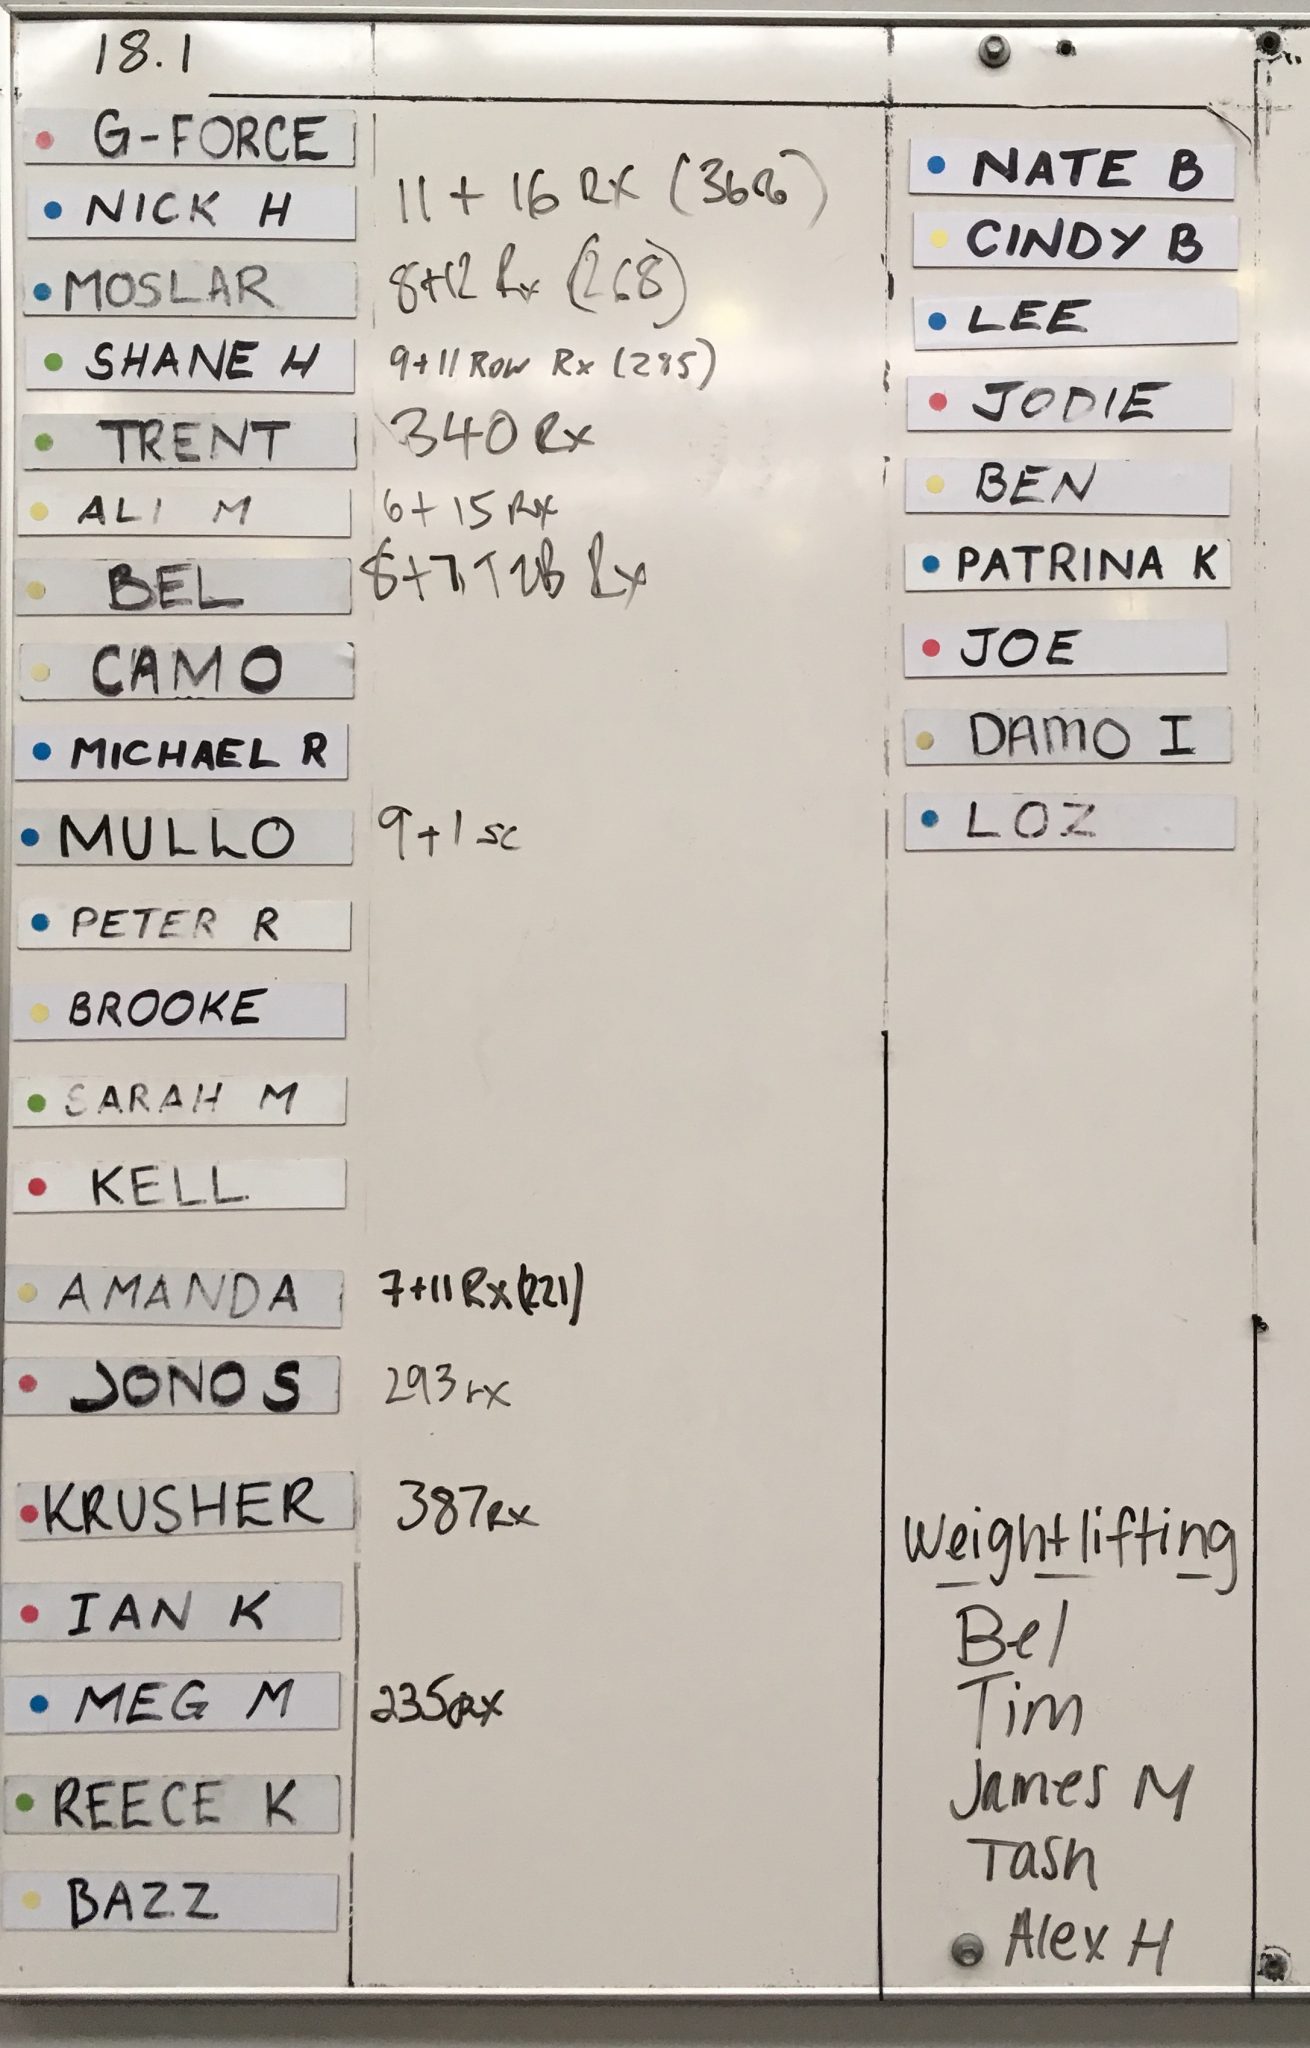 18.1
G-FORCE
NICK H 11 + 16 RX (368)
MOSLAR 8+12 Rx (268)
SHANE H 9+11 Row Rx (285)
TRENT 340 Rx
ALI M 6+15 Rx
BEL 8+7 T2B Rx
CAMO
MICHAEL R
MULLO 9+1 sc
PETER R
BROOKE
SARAH M
KELL
AMANDA 7+11 Rx (221)
JONO S 293 rx
KRUSHER 387 Rx
IAN K
MEG M 235 RX
REECE K
BAZZ
NATE B
CINDY B
LEE
JODIE
BEN
PATRINA K
JOE
DAMO I
LOZ
Weightlifting
Bel
Tim
James M
Tash
Alex H